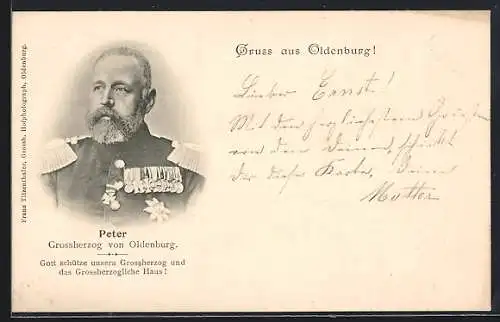 Gruss aus Oldenburg!
Lieber Ernst!
Mit den herzlichsten Grüßen
von den Deinen, schickt
Dir diese Karte, Deine
Mutter
Franz Titzenthaler, Grossh. Hofphotograph, Oldenburg.
Peter
Grossherzog von Oldenburg.
Gott schütze unsern Grossherzog und
das Grossherzogliche Haus!